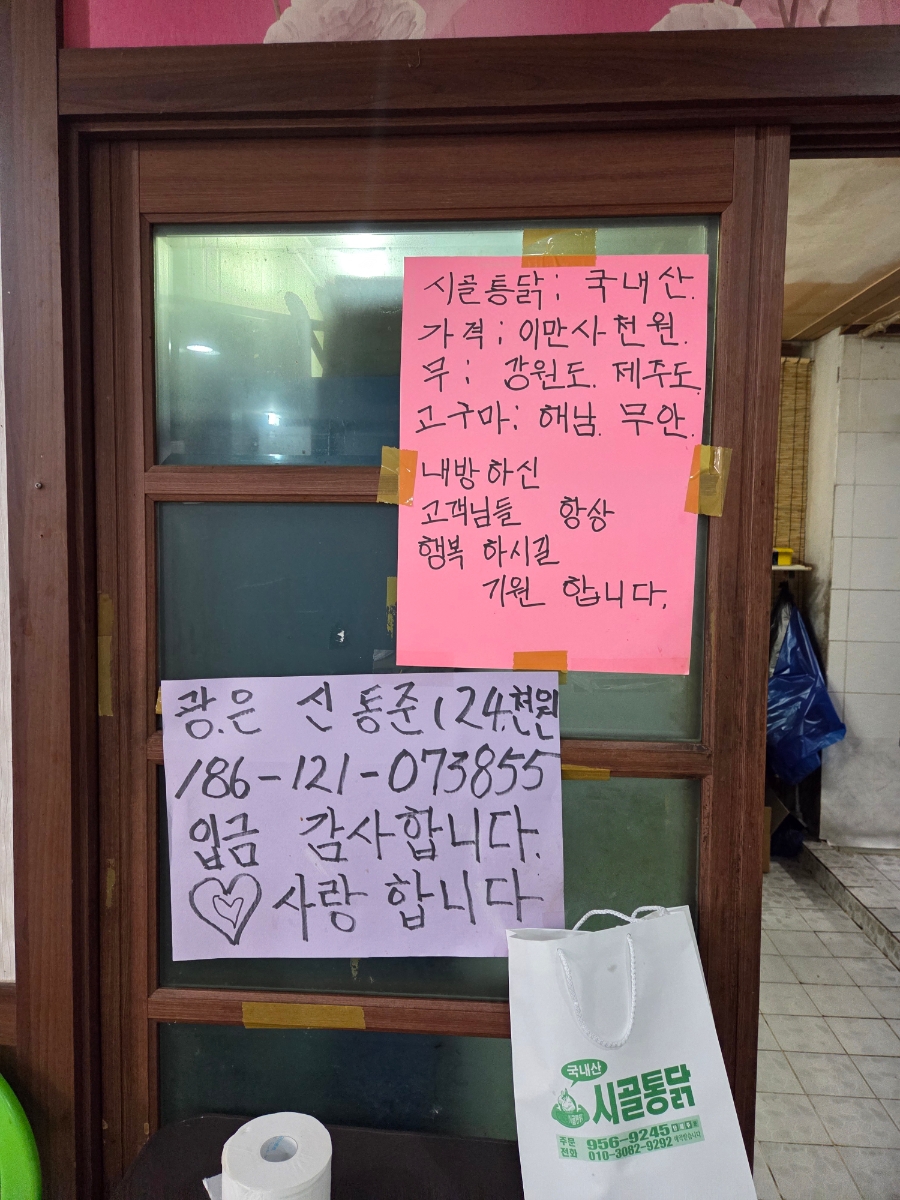 시골통닭: 국내산.
가격: 이만사천원.
무: 강원도. 제주도.
고구마: 해남. 무안.
내방하신
고객님들 항상
행복 하시길
기원 합니다.
광.은 신동준 124.천원
186-121-073855
입금 감사합니다.
사랑 합니다
국내산
시골통닭
주문
전화
956-9245
010-3082-9292